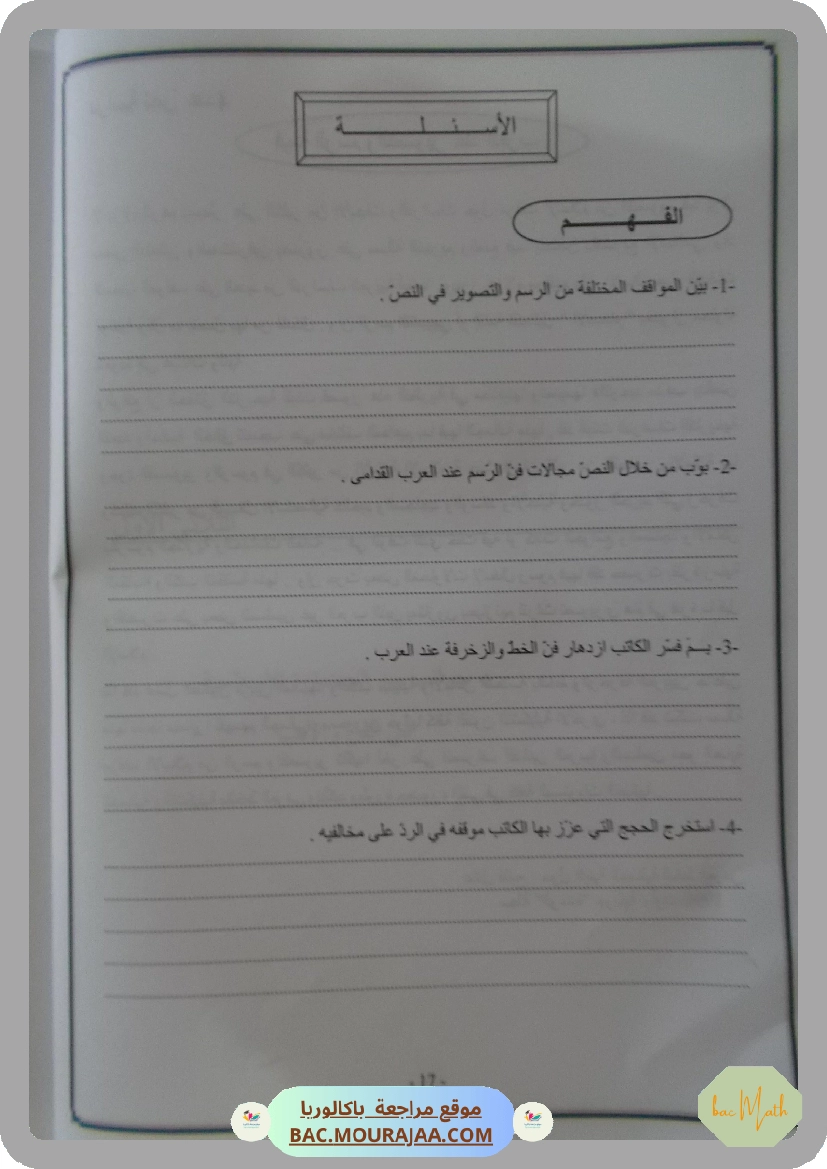 الأسـئـلـة
الفـهـم
-1- بيّن المواقف المختلفة من الرسم والتصوير في النصّ .
-2- بوّب من خلال النصّ مجالات فنّ الرّسم عند العرب القدامى .
-3- بـمَ فسّر الكاتب ازدهار فنّ الخطّ والزخرفة عند العرب .
-4- استخرج الحجج التي عزّز بها الكاتب موقفه في الردّ على مخالفيه .
- 17 -
موقع مراجعة باكالوريا
BAC.MOURAJAA.COM
bac Math